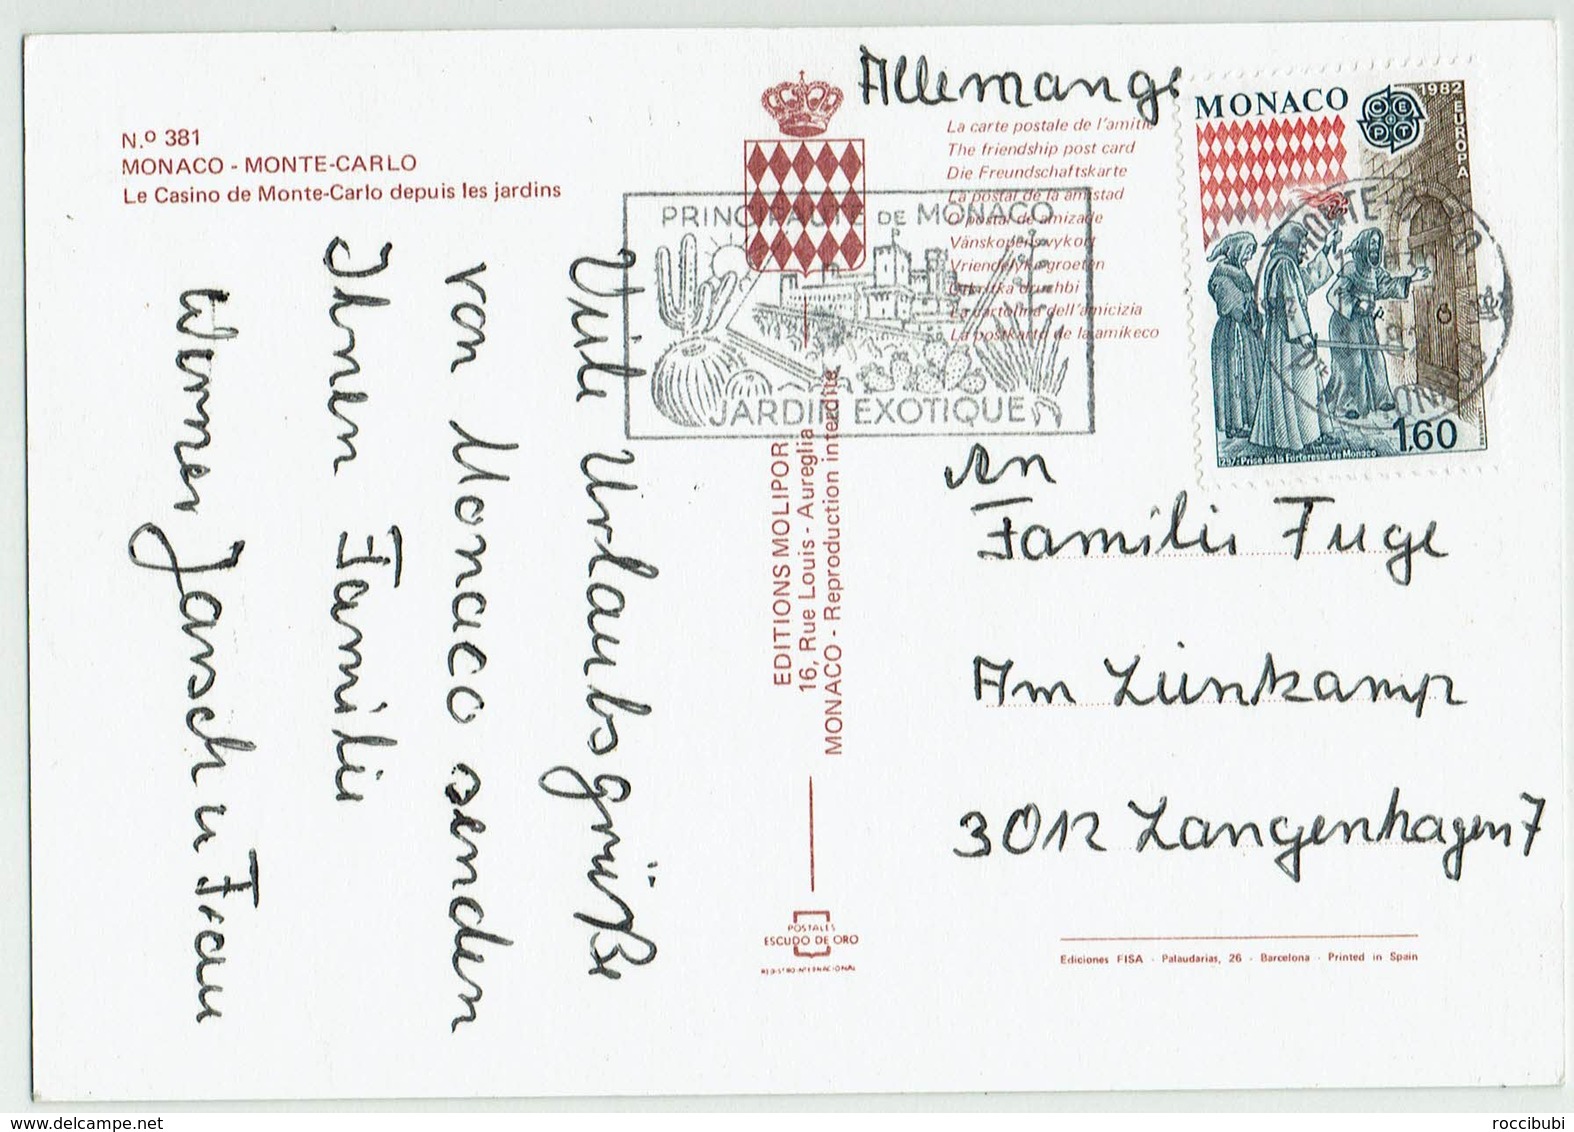 N.º 381
MONACO - MONTE-CARLO
Le Casino de Monte-Carlo depuis les jardins
Viele Urlaubsgrüße
von Monaco senden
Ihnen Familie
Werner Jarsch u Frau
Allemange
La carte postale de l'amitié
The friendship post card
Die Freundschaftskarte
La postal de la amistad
O postal de amizade
Vänskopensvykort
Vriendelyke groeten
La cartolina dell'amicizia
La postkarto de la amikeco
PRINCIPAUTÉ DE MONACO
JARDIN EXOTIQUE
EDITIONS MOLIPOR
16, Rue Louis - Aureglia
MONACO - Reproduction interdite
POSTALES
ESCUDO DE ORO
REGISTRO INTERNACIONAL
MONACO
CEPT
1982
EUROPA
1,60
1297 Prise de la Forteresse de Monaco
MONTE-CARLO
An
Familie Fuge
Am Lünkamp
3012 Langenhagen 7
Ediciones FISA - Palaudarias, 26 - Barcelona - Printed in Spain
delcampe.net
roccibubi